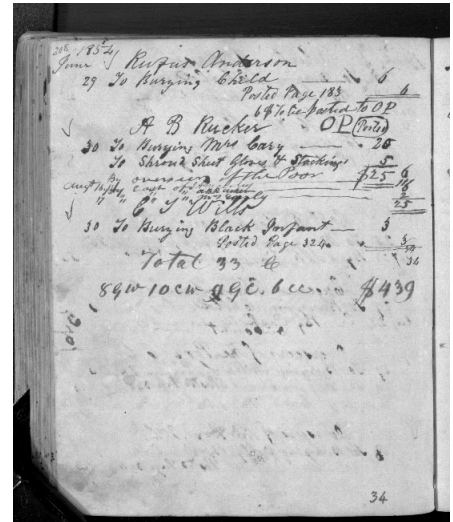 206 1854
June Rufus Anderson
29 To Burying Child 6
Posted Page 183 6
6 $ To be posted to OP
A B Rucker OP Posted
30 To Burying Mrs Cary 20
To Shroud Sheet Gloves & Stockings 5
By overseers of the Poor $25
17 25
C J Wills
30 To Burying Black Infant 3
Posted Page 324 3
34
Total 33 C 34
89w 10cw 29c. 6cc. $439
34